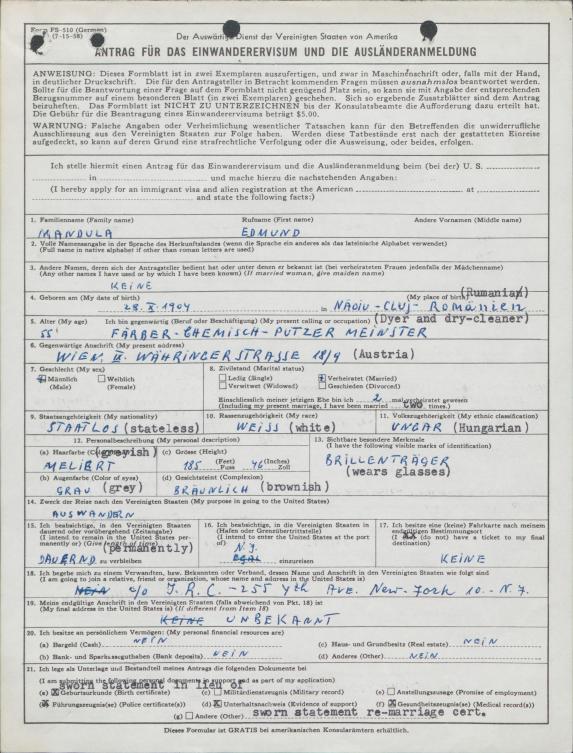 Form FS-510 (German)
(7-15-58)
Der Auswärtige Dienst der Vereinigten Staaten von Amerika
ANTRAG FÜR DAS EINWANDERERVISUM UND DIE AUSLÄNDERANMELDUNG
ANWEISUNG: Dieses Formblatt ist in zwei Exemplaren auszufertigen, und zwar in Maschinenschrift oder, falls mit der Hand,
in deutlicher Druckschrift. Die für den Antragsteller in Betracht kommenden Fragen müssen ausnahmslos beantwortet werden.
Sollte für die Beantwortung einer Frage auf dem Formblatt nicht genügend Platz sein, so kann sie mit Angabe der entsprechenden
Bezugsnummer auf einem besonderen Blatt (in zwei Exemplaren) geschehen. Sich so ergebende Zusatzblätter sind dem Antrag
beizuheften. Das Formblatt ist NICHT ZU UNTERZEICHNEN bis der Konsulatsbeamte die Aufforderung dazu erteilt hat.
Die Gebühr für die Beantragung eines Einwanderervisums beträgt $5.00.
WARNUNG: Falsche Angaben oder Verheimlichung wesentlicher Tatsachen kann für den Betreffenden die unwiderrufliche
Ausschliessung aus den Vereinigten Staaten zur Folge haben. Werden diese Tatbestände erst nach der gestatteten Einreise
aufgedeckt, so kann auf deren Grund eine strafrechtliche Verfolgung oder die Ausweisung, oder beides, erfolgen.
Ich stelle hiermit einen Antrag für das Einwanderervisum und die Ausländeranmeldung beim (bei der) U. S.
in und mache hierzu die nachstehenden Angaben:
(I hereby apply for an immigrant visa and alien registration at the American at
and state the following facts:)
1. Familienname (Family name) Rufname (First name) Andere Vornamen (Middle name)
MANDULA EDMUND
2. Volle Namensangabe in der Sprache des Herkunftslandes (wenn die Sprache ein anderes als das lateinische Alphabet verwendet)
(Full name in native alphabet if other than roman letters are used)
3. Andere Namen, deren sich der Antragsteller bedient hat oder unter denen er bekannt ist (bei verheirateten Frauen jedenfalls der Mädchenname)
(Any other names I have used or by which I have been known) (If married woman, give maiden name)
KEINE
4. Geboren am (My date of birth) (My place of birth) (Rumania)
28. X. 1904 in NADIU - CLUJ - ROMÄNIEN
5. Alter (My age) Ich bin gegenwärtig (Beruf oder Beschäftigung) (My present calling or occupation) (Dyer and dry-cleaner)
55 FÄRBER-CHEMISCH-PUTZER MEINSTER
6. Gegenwärtige Anschrift (My present address)
WIEN, IX. WÄHRINGERSTRASSE 18/9 (Austria)
7. Geschlecht (My sex) 8. Zivilstand (Marital status)
Männlich Weiblich Ledig (Single) Verheiratet (Married)
(Male) (Female) Verwitwet (Widowed) Geschieden (Divorced)
Einschliesslich meiner jetzigen Ehe bin ich 2 mal verheiratet gewesen
(Including my present marriage, I have been married two times.)
9. Staatsangehörigkeit (My nationality) 10. Rassenzugehörigkeit (My race) 11. Volkszugehörigkeit (My ethnic classification)
STAATLOS (stateless) WEISS (white) UNGAR (Hungarian)
12. Personenbeschreibung (My personal description) 13. Sichtbare besondere Merkmale
(a) Haarfarbe (greyish) (c) Grösse (Height) (I have the following visible marks of identification)
MELIERT 185 (Feet) Fuss (Inches) Zoll BRILLENTRÄGER
(b) Augenfarbe (Color of eyes) (d) Gesichtsteint (Complexion) (wears glasses)
GRAU (grey) BRÄUNLICH (brownish)
14. Zweck der Reise nach den Vereinigten Staaten (My purpose in going to the United States)
AUSWANDERN
15. Ich beabsichtige, in den Vereinigten Staaten 16. Ich beabsichtige, in die Vereinigten Staaten in 17. Ich besitze eine (keine) Fahrkarte nach meinem
dauernd oder vorübergehend (Zeitangabe) (Hafen oder Grenzübertrittstelle) endgültigen Bestimmungsort
(I intend to remain in the United States per- (I intend to enter the United States at the port (I (do not) have a ticket to my final
manently or) (Give length of time) (permanently) of) destination)
N.Y.
DAUERND zu verbleiben EGAL einzureisen KEINE
18. Ich begebe mich zu einem Verwandten, bzw. Bekannten oder Verband, dessen Name und Anschrift in den Vereinigten Staaten wie folgt sind
(I am going to join a relative, friend or organization, whose name and address in the United States is)
NEIN c/o I.R.C - 255 4th AVE. New-York 10.- N.Y.
19. Meine endgültige Anschrift in den Vereinigten Staaten (falls abweichend von Pkt. 18) ist
(My final address in the United States is) (If different from Item 18)
KEINE UNBEKANNT
20. Ich besitze an persönlichem Vermögen: (My personal financial resources are)
(a) Bargeld (Cash) NEIN (c) Haus- und Grundbesitz (Real estate) NEIN
(b) Bank- und Sparkassaguthaben (Bank deposits) NEIN (d) Anderes (Other) NEIN
21. Ich lege als Unterlage und Bestandteil meines Antrags die folgenden Dokumente bei
(I am submitting the following personal documents in support and as part of my application)
sworn statement in lieu of
(a) Geburtsurkunde (Birth certificate) (c) Militärdienstzeugnis (Military record) (e) Anstellungszusage (Promise of employment)
(b) Führungszeugnis(se) (Police certificate(s)) (d) Unterhaltsnachweis (Evidence of support) (f) Gesundheitszeugnis(se) (Medical record(s))
(g) Andere (Other) sworn statement re-marriage cert.
Dieses Formular ist GRATIS bei amerikanischen Konsularämtern erhältlich.